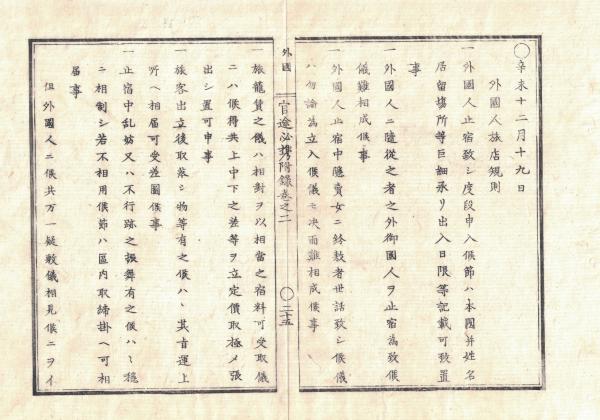 〇辛未十二月十九日
外國人旅店規則
一外國人止宿致シ度段申入候節ハ本國并姓名
居留場所等巨細承リ出入日限等記載可致置
事
一外國人ニ隨從之者之外御國人ヲ止宿為致候
儀難相成候事
一外國人止宿中隱賣女ニ紛敷者世話致シ候儀
ハ勿論為立入候儀モ决而難相成候事
外國
官途必携附録卷之二
〇二十五
一旅籠賃之儀ハ相對ヲ以相當之宿料可受取儀
ニハ候得共上中下之差等ヲ立定價取極メ張
出シ置可申事
一旅客出立後取落シ物等有之候ハヽ其旨運上
所ヘ相届可受差圖候事
一止宿中乱妨又ハ不行跡之振舞有之候ハヽ穩
ニ相制シ若不相用候節ハ區内取締掛ヘ可相
届事
但外國人ニ候共万一疑敷儀相見候ニヲイ